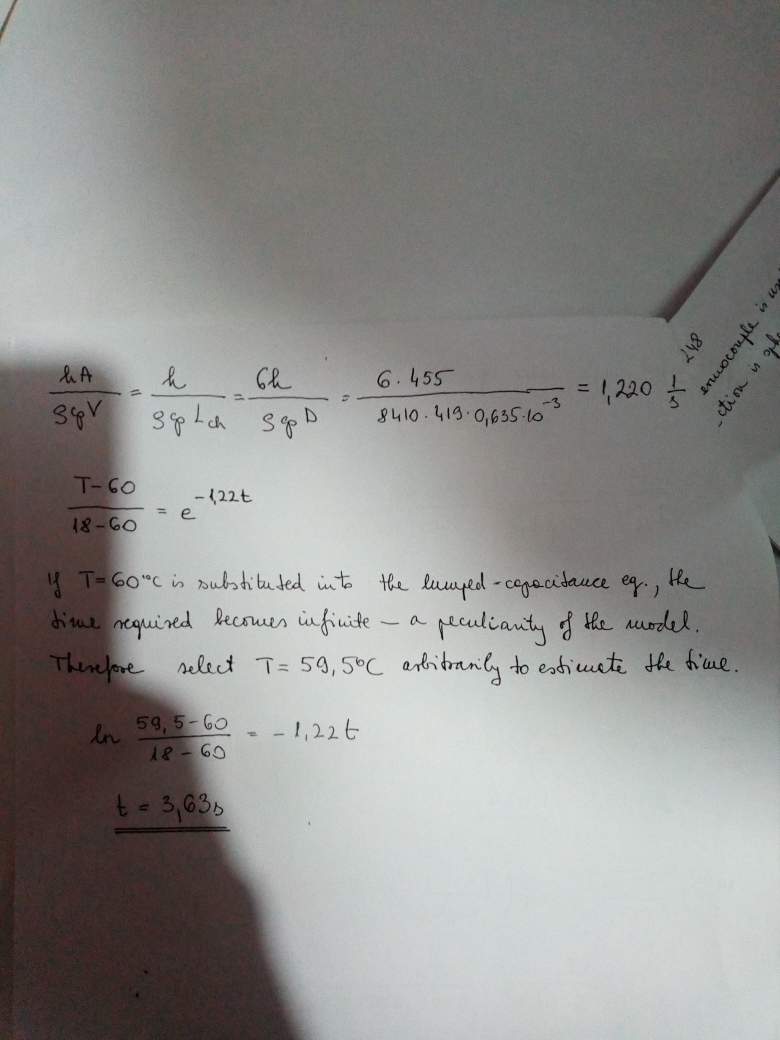 hA/ρcpV = h/ρcp Lch = 6h/ρcp D = 6·455/8410·419·0,635·10⁻³ = 1,220 1/s
T-60/18-60 = e^-1,22t
If T=60°C is substituted into the lumped-capacitance eq., the
time required becomes infinite – a peculiarity of the model.
Therefore select T= 59,5°C arbitrarily to estimate the time.
ln 59,5-60/18-60 = -1,22t
t = 3,63s
ermocouple is
-ction is